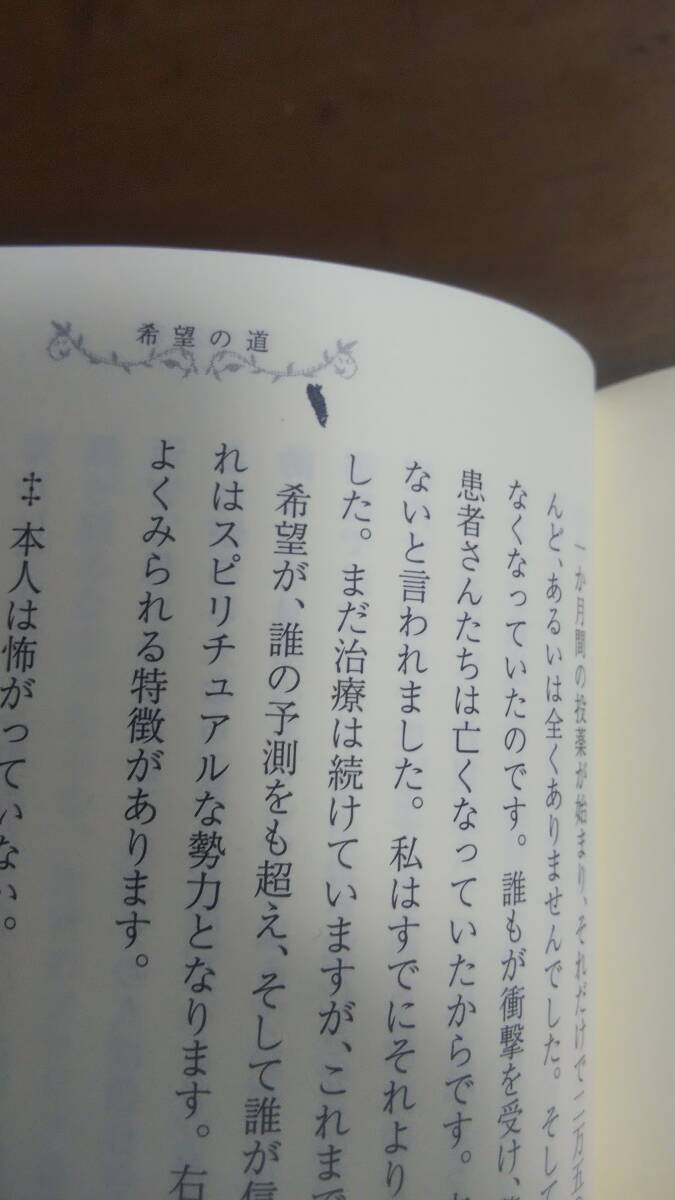 希望の道
一か月間の投薬が始まり、それだけで二万五
んど、あるいは全くありませんでした。そして
なくなっていたのです。誰もが衝撃を受け、
患者さんたちは亡くなっていたからです。
ないと言われました。私はすでにそれより
した。まだ治療は続けていますが、これまで
希望が、誰の予測をも超え、そして誰が信
れはスピリチュアルな勢力となります。右
よくみられる特徴があります。
‡本人は怖がっていない。